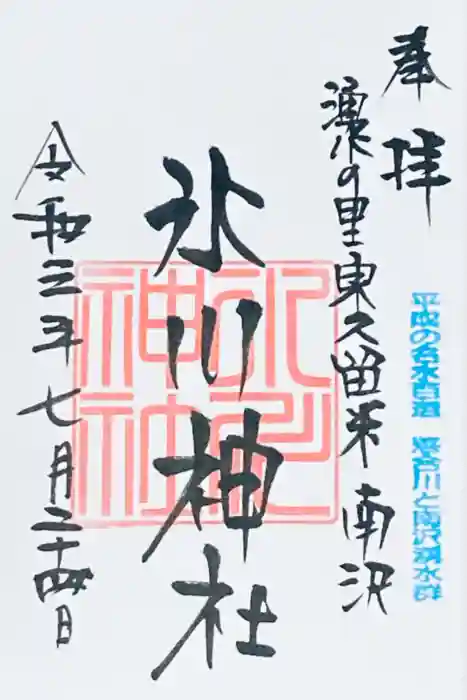 奉拝
平成の名水百選 落合川と南沢湧水群
湧水の里東久留米 南沢
氷川神社
氷川神社
令和三年七月二十四日